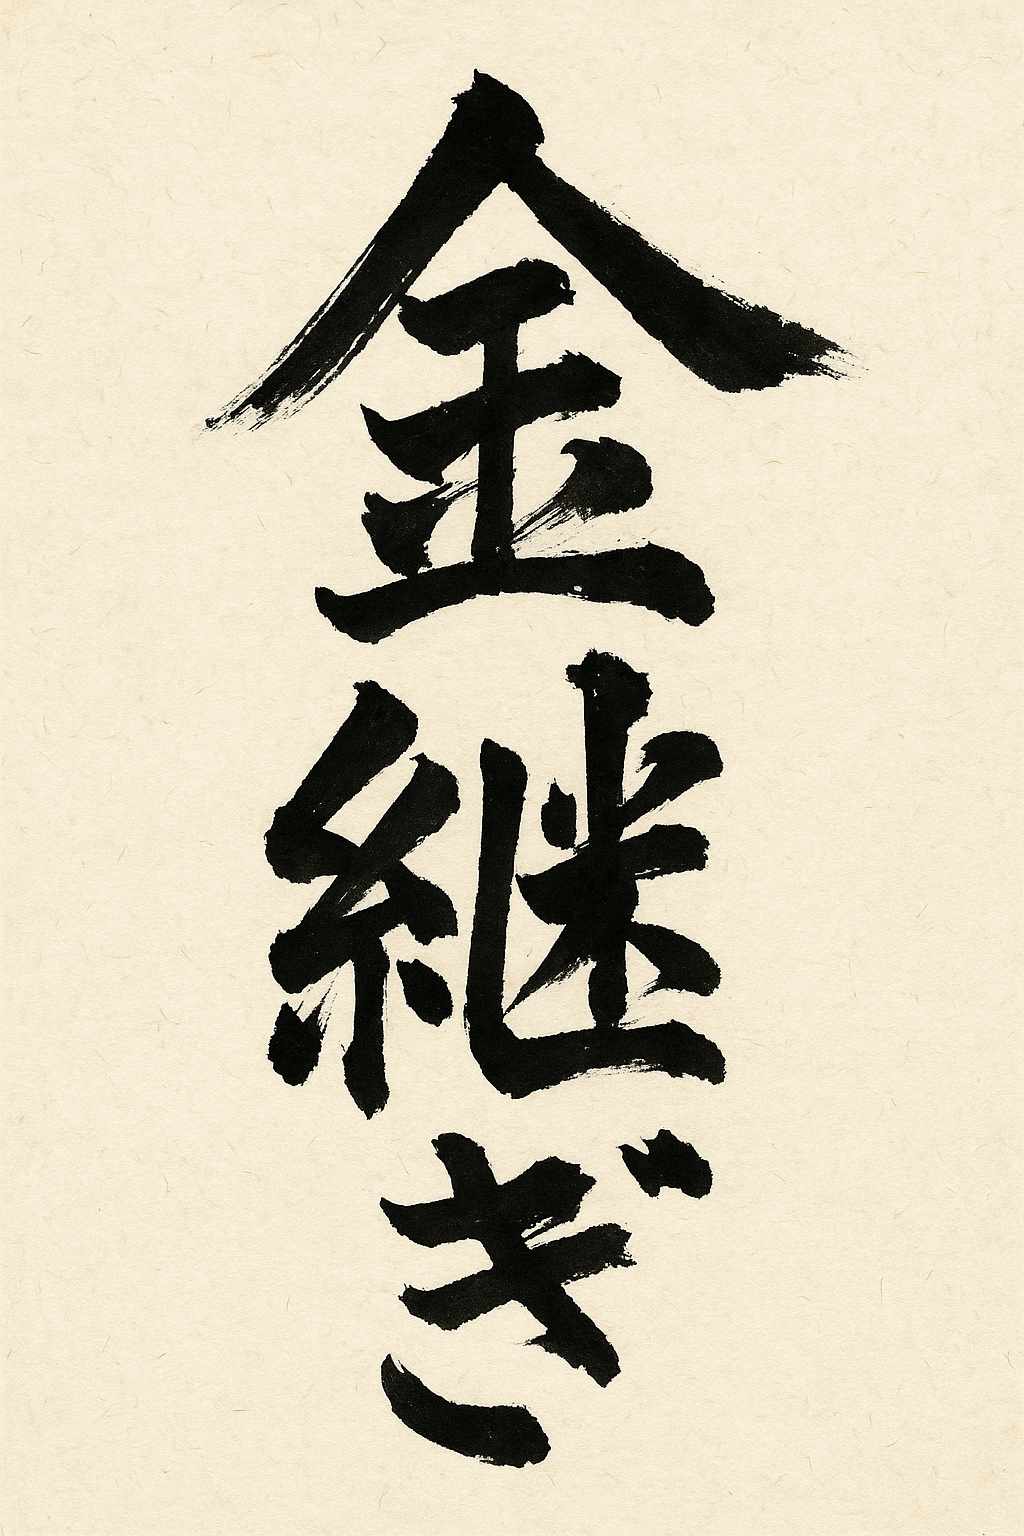 金継ぎ